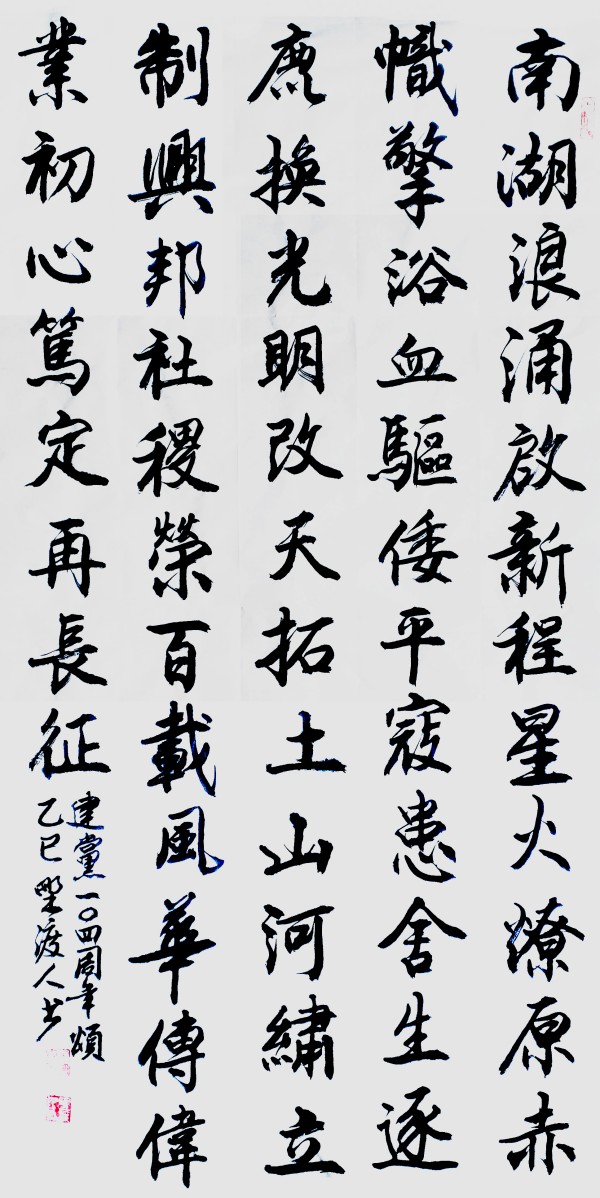 南湖浪涌啟新程星火燎原赤
幟擎浴血驅倭平寇患舍生逐
鹿換光明改天拓土山河繡立
制興邦社稷榮百載風華傳偉
業初心篤定再長征
建黨一〇四周年頌
乙巳野渡人书